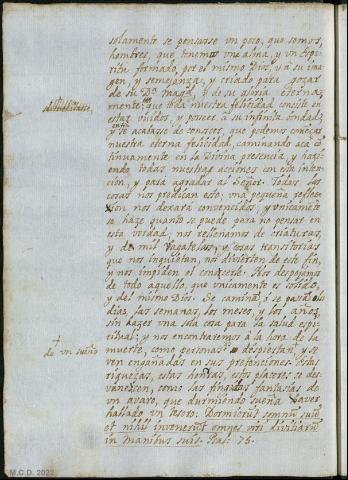 solamente se pensasse un poco, que somos
hombres, que tenemos una alma, y un
formado, por el mismo Dios, y a su ima
gen, y semejanza, y criado para gozar
de su D.a y de su gloria eterna
mente, que nuestra felicidad consiste en
estar unidos, y poseer a su infinita bondad,
y se acabasse de conocer, que podemos començar
nuestra eterna felicidad, caminando aca con
tinuamente en la Divina presencia, y hazi
endo todas nuestras acciones con esta inten
cion, y para agradar al Señor. Todas las
cosas nos predican esto; una pequeña reflec
xion nos dexará convencidos, y unicamente
se haze quanto se puede para no pensar en
esta verdad, nos rellenamos de criaturas,
y de mil vagatelas, y cosas transitorias
que nos inquietan, nos divierten de este fin,
y nos impiden el conocerle. Nos despojamos
de todo aquello, que unicamente es solido,
y del mismo Dios. Se camina, o se passa los
dias, las semanas, los meses, y los años,
sin hazer una sola cosa para la salud espi
ritual; y nos encontraremos á la hora de la
+
de un sueño
muerte, como personas despiertan, y se
ven engañadas en sus pretenciones. Estas
riquezas, estas honras, estos plazeres se des
vanescen, como las fingidas fantasias de
un avaro, que durmiendo sueña haver
hallado un tesoro. Dormierut somnu suu
et nihil invenerut omnes viri divitiaru
in manibus suis. Psal: 75.
M.C.D. 2022